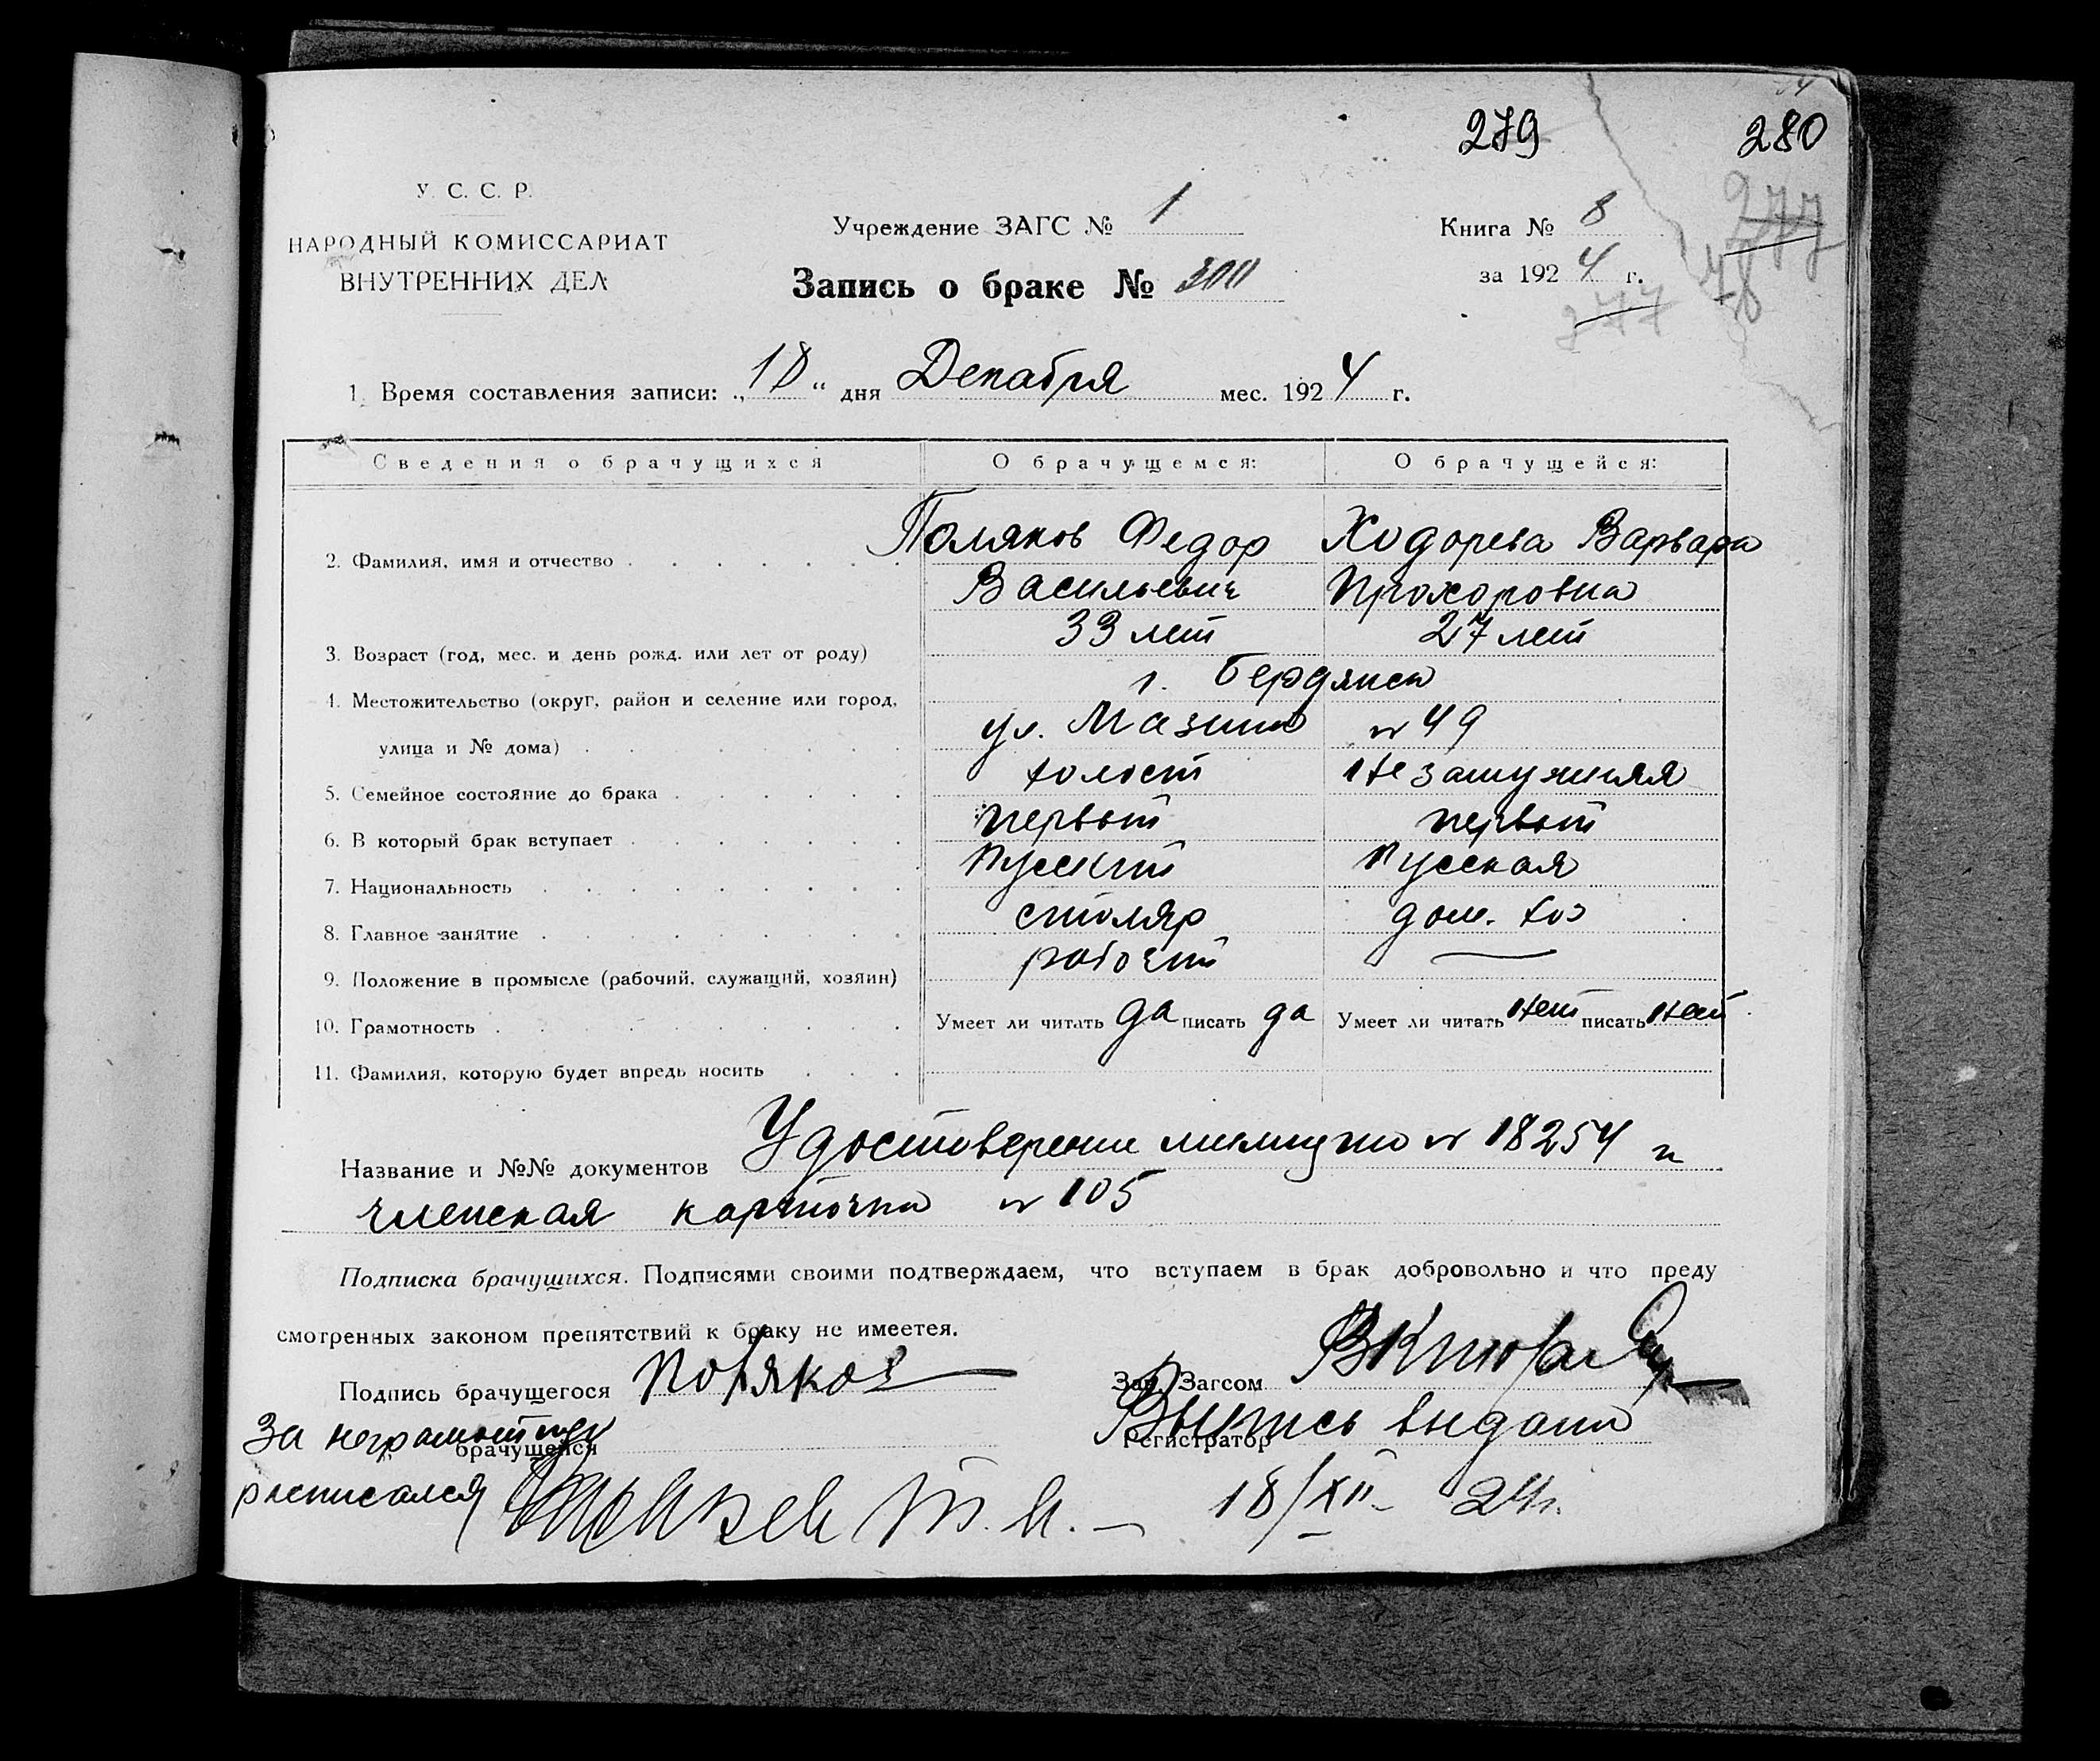 279 280
277
78
У. С. С. Р.
НАРОДНЫЙ КОМИССАРИАТ
ВНУТРЕННИХ ДЕЛ
Учреждение ЗАГС № 1
Книга № 8
Запись о браке № 300
за 1924 г.
277
1. Время составления записи: „18“ дня Декабря мес. 1924 г.
Сведения о брачущихся О брачущемся: О брачущейся:
2. Фамилия, имя и отчество Поляков Федор Ходорева Варвара
Васильевич Прохоровна
3. Возраст (год, мес. и день рожд. или лет от роду) 33 лет 27 лет
4. Местожительство (округ, район и селение или город, г. Бердянск
улица и № дома) ул. Мазина № 49
5. Семейное состояние до брака холост Незамужняя
6. В который брак вступает первый первый
7. Национальность Русский Русская
8. Главное занятие столяр дом. хоз
9. Положение в промысле (рабочий, служащий, хозяин) рабочий —
10. Грамотность Умеет ли читать да писать да Умеет ли читать Нет писать Нет
11. Фамилия, которую будет впредь носить
Название и №№ документов Удостоверение милиции № 18254 и
членская карточка № 105
Подписка брачущихся. Подписями своими подтверждаем, что вступаем в брак добровольно и что преду
смотренных законом препятствий к браку не имеется.
Подпись брачущегося Поляков Зав. Загсом
За неграмотную брачущейся Регистратор Выпись выдана
росписался 18/XII- 24г.